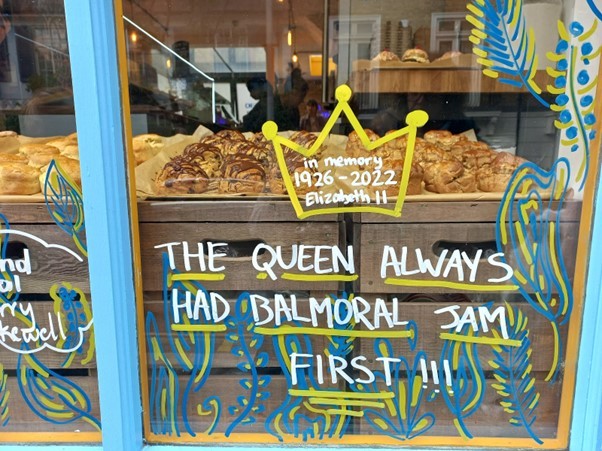 in memory
1926 - 2022
Elizabeth II
THE QUEEN ALWAYS
HAD BALMORAL JAM
FIRST !!!